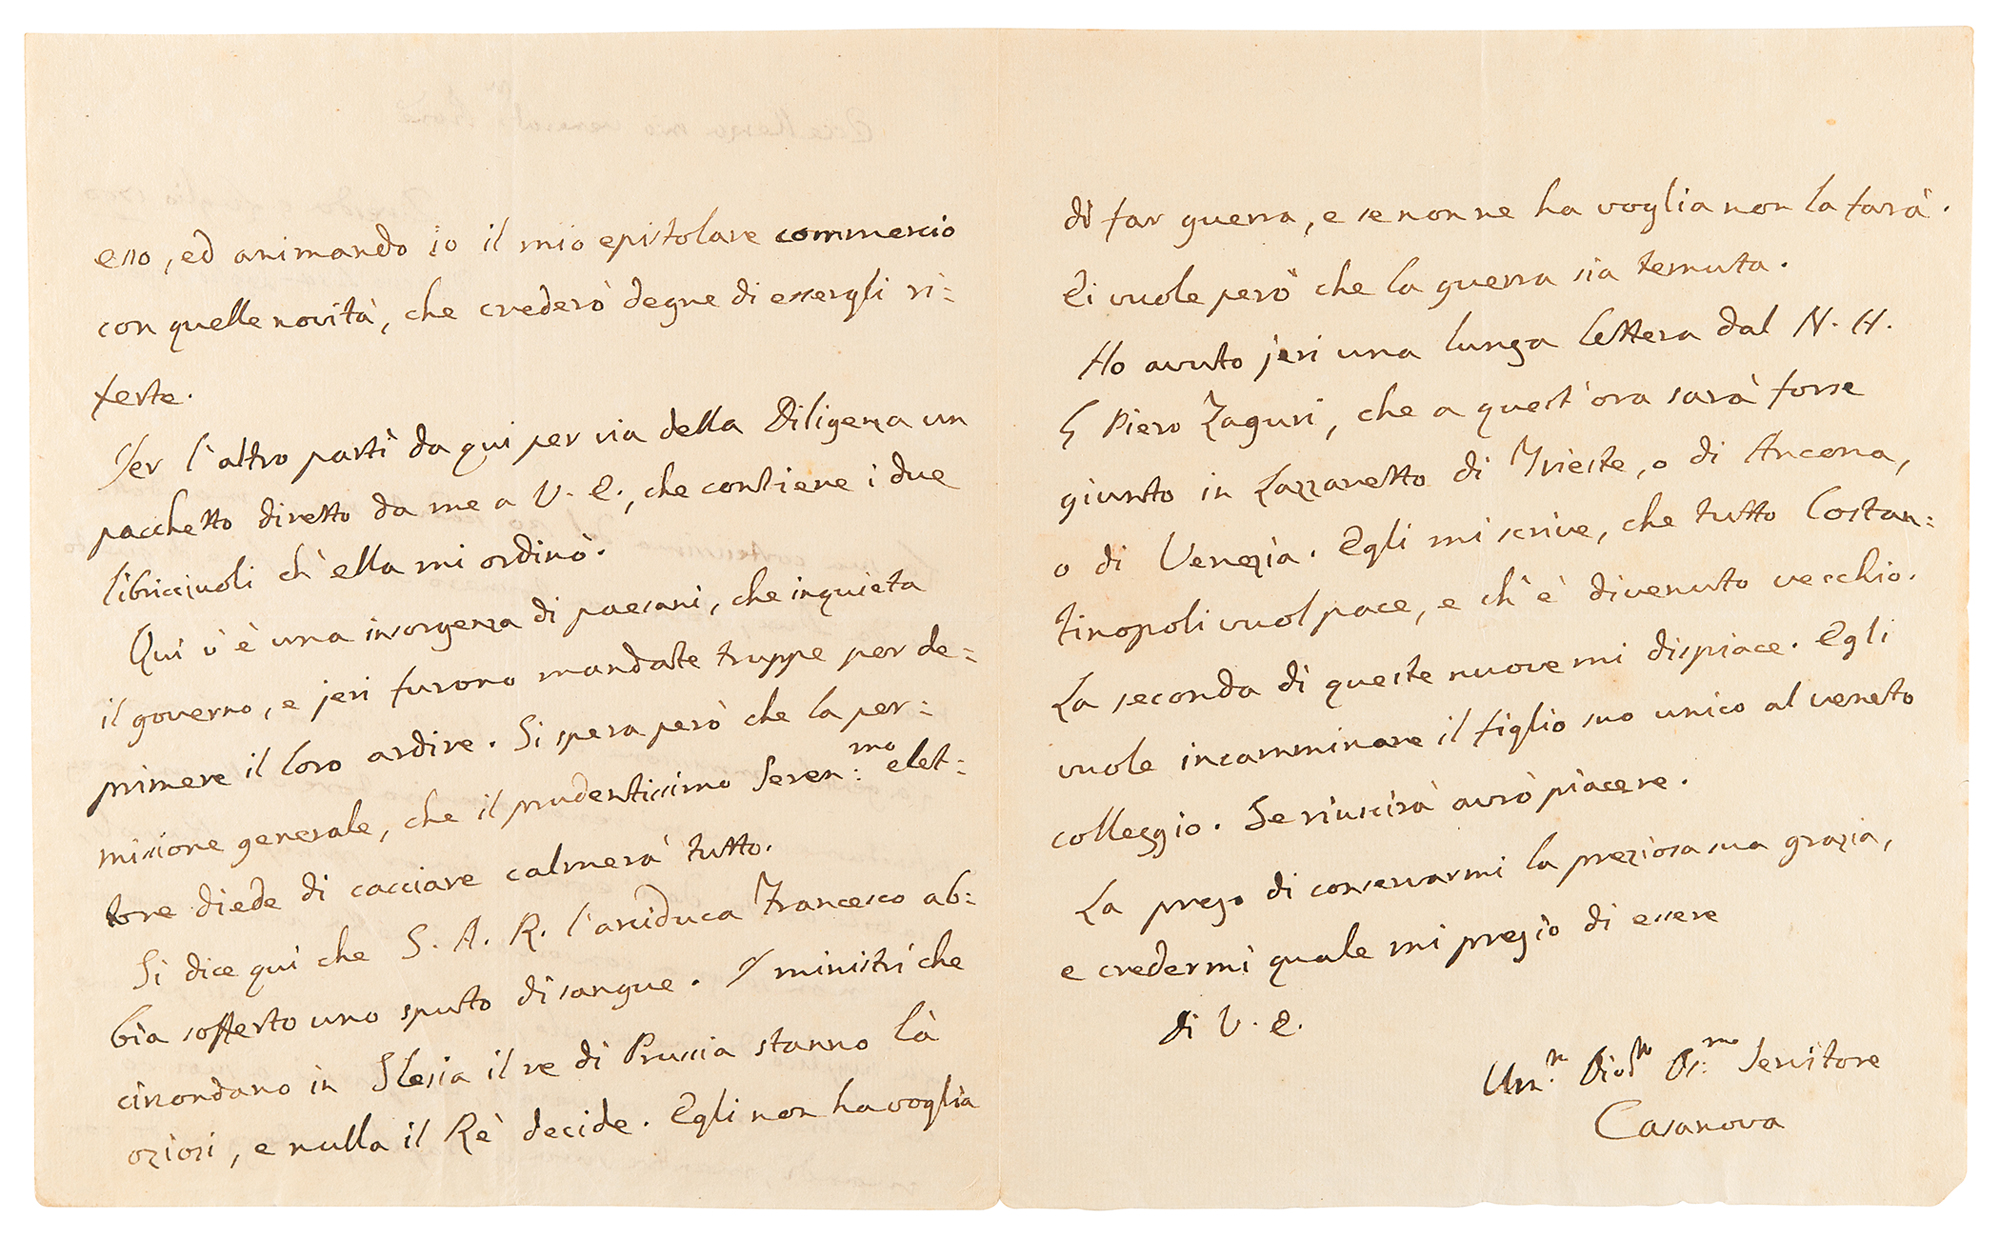 esso, ed animando io il mio epistolare commercio
con quelle novità, che crederò degne di essergli ri=
ferte.
Jer l'altro partì da qui per via della Diligenza un
pacchetto diretto da me a V. E., che contiene i due
libricciuoli ch'ella mi ordinò.
Qui v'è una insorgenza di paesani, che inquieta
il governo, e jeri furono mandate truppe per de=
primere il loro ardire. Si spera però che la per=
missione generale, che il prudentissimo Seren:mo elet=
tore diede di cacciare calmerà tutto.
Si dice qui che S. A. R. l'arciduca Francesco ab=
bia sofferto uno sputo di sangue. I ministri che
circondano in Slesia il re di Prussia stanno là
oziosi, e nulla il Rè decide. Egli non ha voglia
di far guerra, e se non ne ha voglia non la farà.
Ei vuole però che la guerra sia temuta.
Ho avuto jeri una lunga lettera dal N. H.
Piero Zaguri, che a quest'ora sarà forse
giunto in Lazzaretto di Trieste, o di Ancona,
o di Venezia. Egli mi scrive, che tutto Costan=
tinopoli vuol pace, e ch'è divenuto vecchio.
La seconda di queste nuove mi dispiace. Egli
vuole incamminare il figlio suo unico al veneto
colleggio. Se riuscirà avrò piacere.
La prego di conservarmi la preziosa sua grazia,
e credermi quale mi pregio di essere
di V. E.
Servitore
Casanova